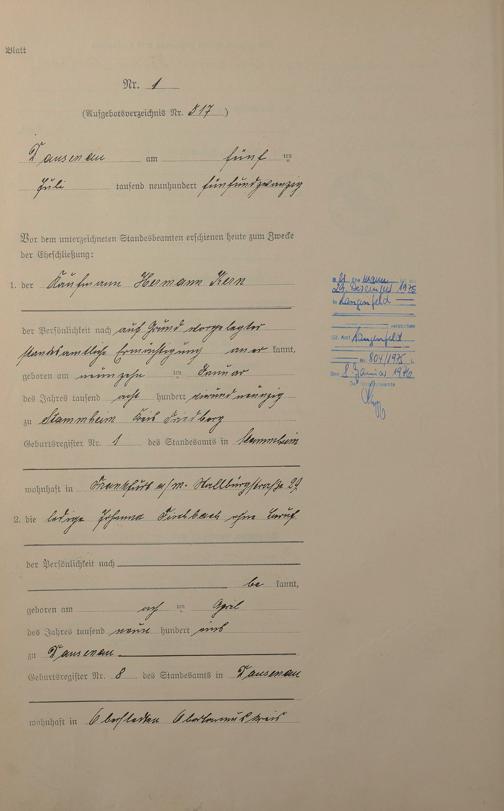 Blatt
Nr. 1
(Aufgebotsverzeichnis Nr. 817)
Dausenau am fünf ten
Juli tausend neunhundert fünfundzwanzig
Vor dem unterzeichneten Standesbeamten erschienen heute zum Zwecke
der Eheschließung:
1. der Kaufmann Hermann Kern
der Persönlichkeit nach auf Grund vorgelegter
standesamtliche Ermächtigung aner kannt,
geboren am neunzehn ten Januar
des Jahres tausend acht hundert neunzig
zu Stammheim Kreis Friedberg
Geburtsregister Nr. 1 des Standesamts in Stammheim
wohnhaft in Frankfurt a/m. 29
2. die ledige Johanna ohne Beruf
der Persönlichkeit nach
be kannt,
geboren am ach ten April
des Jahres tausend neun hundert eins
zu Dausenau
Geburtsregister Nr. 8 des Standesamts in Dausenau
wohnhaft in Oberstedten Obertaunuskreis
29. Dezember 1975
in Langenfeld
Langenfeld
804/1975
8. Januar 1976